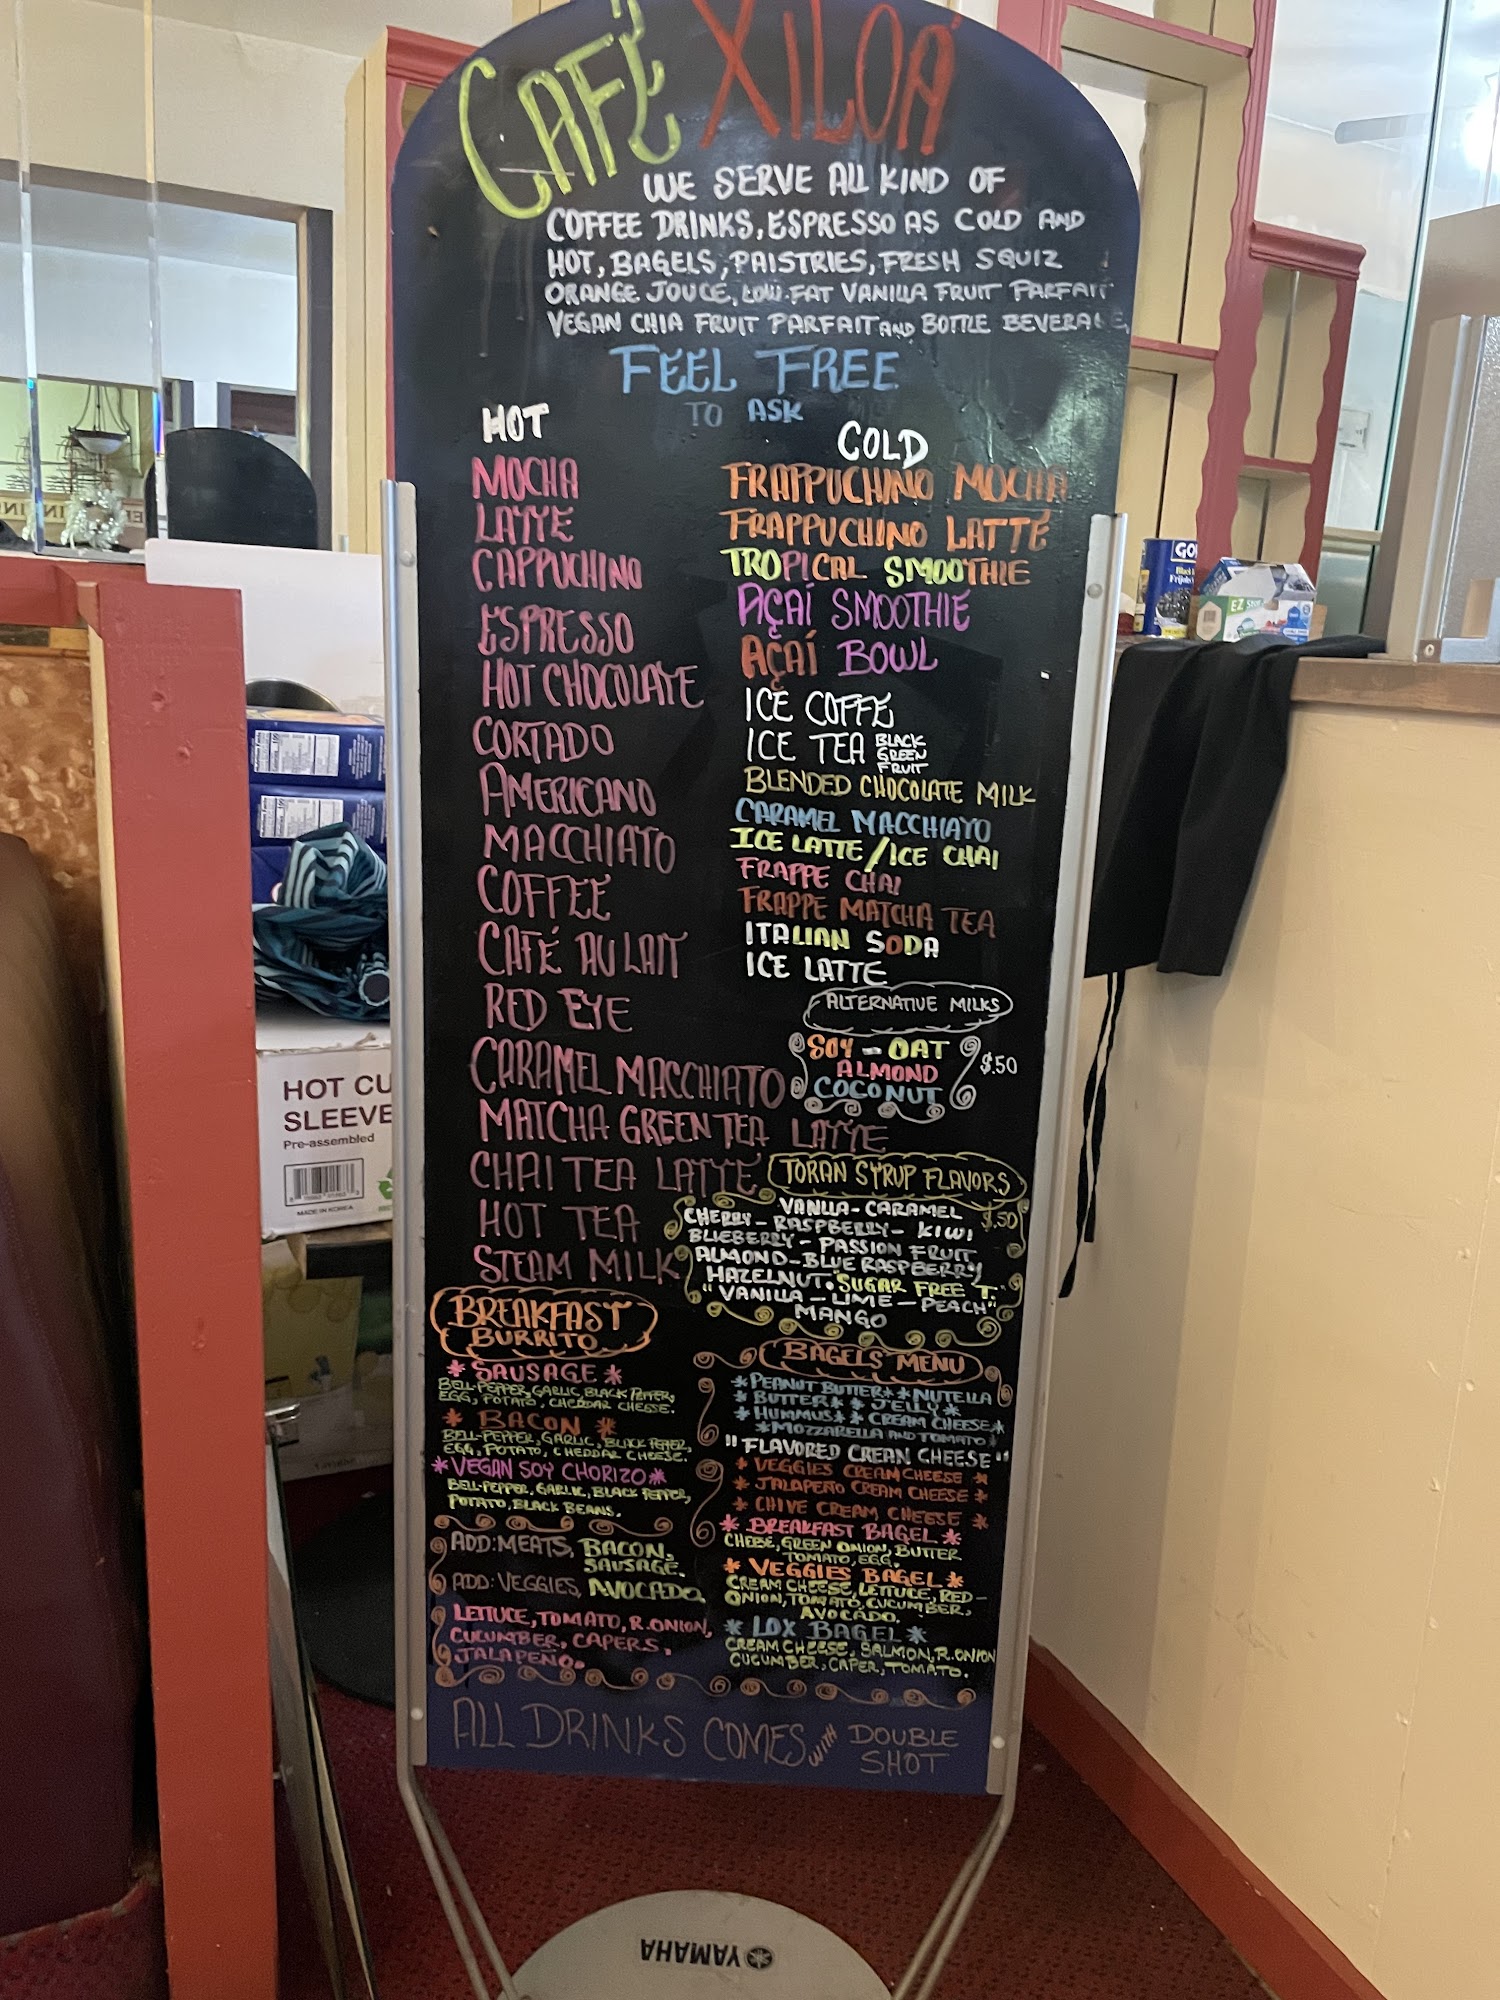 CAFÉ XILOÁ
WE SERVE ALL KIND OF
COFFEE DRINKS, ESPRESSO AS COLD AND
HOT, BAGELS, PAISTRIES, FRESH SQUIZ
ORANGE JOUCE, LOW-FAT VANILLA FRUIT PARFAIT
VEGAN CHIA FRUIT PARFAIT AND BOTTLE BEVERAGE
FEEL FREE
TO ASK
HOT
MOCHA
LATTE
CAPPUCHINO
ESPRESSO
HOT CHOCOLATE
CORTADO
AMERICANO
MACCHIATO
COFFEE
CAFÉ AU LAIT
RED EYE
CARAMEL MACCHIATO
MATCHA GREEN TEA LATTE
CHAI TEA LATTE
HOT TEA
STEAM MILK
COLD
FRAPPUCHINO MOCHA
FRAPPUCHINO LATTE
TROPICAL SMOOTHIE
AÇAÍ SMOOTHIE
AÇAÍ BOWL
ICE COFFE
ICE TEA BLACK
GREEN
FRUIT
BLENDED CHOCOLATE MILK
CARAMEL MACCHIATO
ICE LATTE/ICE CHAI
FRAPPE CHAI
FRAPPE MATCHA TEA
ITALIAN SODA
ICE LATTE
ALTERNATIVE MILKS
SOY - OAT
ALMOND
COCONUT
$.50
TORAN SYRUP FLAVORS
VANLLA - CARAMEL
$.50
CHERRY - RASPBERRY - KIWI
BLUEBERRY - PASSION FRUIT
ALMOND - BLUE RASPBERRY
HAZELNUT. "SUGAR FREE T."
"VANILLA - LIME - PEACH"
MANGO
BREAKFAST
BURRITO
* SAUSAGE *
BELL-PEPPER, GARLIC, BLACK PEPPER,
EGG, POTATO, CHEDDAR CHEESE.
* BACON *
BELL-PEPPER, GARLIC, BLACK PEPPER,
EGG, POTATO, CHEDDAR CHEESE.
*VEGAN SOY CHORIZO*
BELL-PEPPER, GARLIC, BLACK PEPPER,
POTATO, BLACK BEANS.
ADD: MEATS, BACON,
SAUSAGE.
ADD: VEGGIES, AVOCADO,
LETTUCE, TOMATO, R.ONION,
CUCUMBER, CAPERS,
JALAPEÑO.
BAGELS MENU
* PEANUT BUTTER * * NUTELLA
* BUTTER * * JELLY *
* HUMMUS * * CREAM CHEESE *
*MOZZARELLA AND TOMATO
"FLAVORED CREAN CHEESE"
* VEGGIES CREAM CHEESE *
* JALAPEÑO CREAM CHEESE *
* CHIVE CREAM CHEESE *
* BREAKFAST BAGEL *
CHEESE, GREEN ONION, BUTTER
TOMATO, EGG.
* VEGGIES BAGEL *
CREAM CHEESE, LETTUCE, RED-
ONION, TOMATO, CUCUMBER,
AVOCADO.
* LOX BAGEL *
CREAM CHEESE, SALMON, R.ONION
CUCUMBER, CAPER, TOMATO.
ALL DRINKS COMES WITH DOUBLE
SHOT
HOT CU
SLEEVE
Pre-assembled
MADE IN KOREA
GO
EZ
YAMAHA